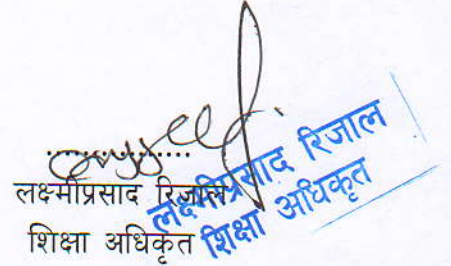 ..................
लक्ष्मीप्रसाद रिजाल
शिक्षा अधिकृत
लक्ष्मीप्रसाद रिजाल
शिक्षा अधिकृत